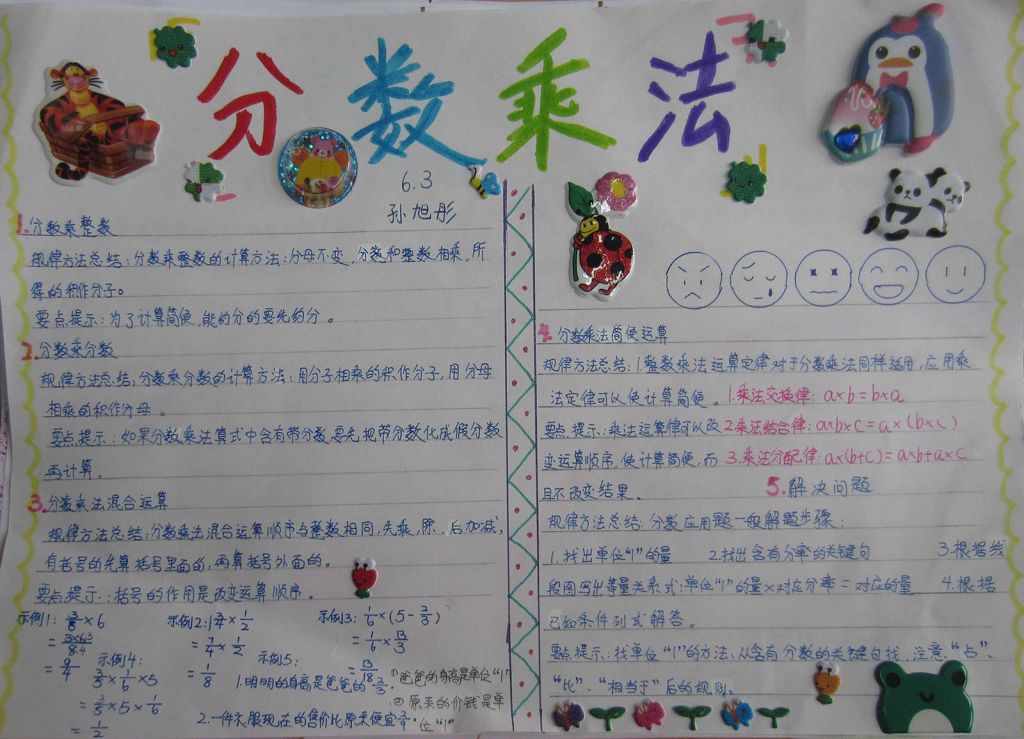 分数乘法
6.3
孙旭彤
1.分数乘整数
规律方法总结:分数乘整数的计算方法:分母不变,分数和整数相乘,所
得的积作分子。
要点提示:为了计算简便,能约分的要先约分。
2.分数乘分数
规律方法总结:分数乘分数的计算方法:用分子相乘的积作分子,用分母
相乘的积作分母。
要点提示:如果分数乘法算式中含有带分数,要先把带分数化成假分数
再计算。
3.分数乘法混合运算
规律方法总结:分数乘法混合运算顺序与整数相同,先乘,除,后加减,
有括号的先算括号里面的,再算括号外面的。
要点提示:括号的作用是改变运算顺序。
示例1: 3/8×6
= 3×6 3/8 4
= 9/4
示例2: 1 3/4×1/2
= 7/4×1/2
=
示例3: 1/6×(5-2/3)
= 1/6×13/3
= 13/18
示例4:
×1/6×5
= ×5×1/6
= 1/2
示例5:
1.明明的身高是爸爸的
①爸爸的身高是单位“1”
2.一件衣服现在的售价比原来便宜
②原来的价钱是单
位“1”
4.分数乘法简便运算
规律方法总结:1整数乘法运算定律对于分数乘法同样适用,应用乘
法定律可以使计算简便。1.乘法交换律:a×b=b×a
要点提示:乘法运算律可以改2乘法结合律:a×b×c=a×(b×c)
变运算顺序,使计算简便,而3.乘法分配律:a×(b+c)=a×b+a×c
且不改变结果。
5.解决问题
规律方法总结:分数应用题一般解题步骤:
1.找出单位“1”的量 2.找出含有分率的关键句 3.根据线
段图写出等量关系式:单位“1”的量×对应分率=对应的量 4.根据
已知条件列式解答。
要点提示:找单位“1”的方法:从含有分数的关键句找,注意:“占”、
“比”、“相当于”后的规则。